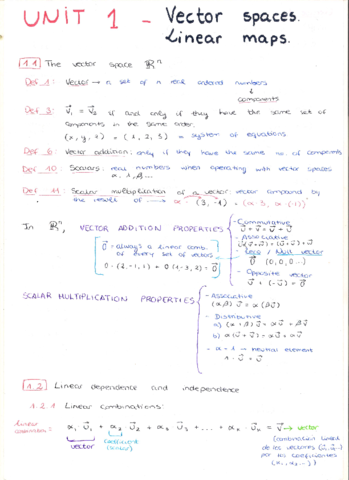 UNIT 1 - Vector spaces.
Linear maps.
1.1 The vector space ℝⁿ
Def 1: Vector → a set of n real ordered numbers
↓
components
Def 3: v⃗₁ = v⃗₂ if and only if they have the same set of
components in the same order.
(x, y, z) = (1, 2, 3) = system of equations
Def 6: Vector addition: only if they have the same no. of components
Def 10: Scalars: real numbers when operating with vector spaces
α, 1, β...
Def 11: Scalar multiplication of a vector: vector compound by
the result of α · (3, -1) = (α·3, α·(-1))
In ℝⁿ, VECTOR ADDITION PROPERTIES
- Commutative
- Associative
- Zero / Null vector
0⃗ (0, 0, 0...)
- Opposite vector
v⃗ + (-v⃗) = 0⃗
0⃗ = always a linear comb.
of every set of vectors
0·(2,-1,1) + 0(1,-3,2) = 0⃗
SCALAR MULTIPLICATION PROPERTIES
- Associative
(αβ) v⃗ = α (βv⃗)
- Distributive
a) (α+β) v⃗ = αv⃗ + βv⃗
- α = 1 → neutral element
1 · v⃗ = v⃗
1.2 Linear dependence and independence
1.2.1 Linear combinations:
α₁ v⃗₁ + α₂ v⃗₂ + α₃ v⃗₃ + ... + αₙ · v⃗ₙ = v⃗ → vector
vector
coefficient
(combinación lineal
de los vectores (v⃗₁, v⃗₂...)
por los coeficientes
(α₁, α₂...)